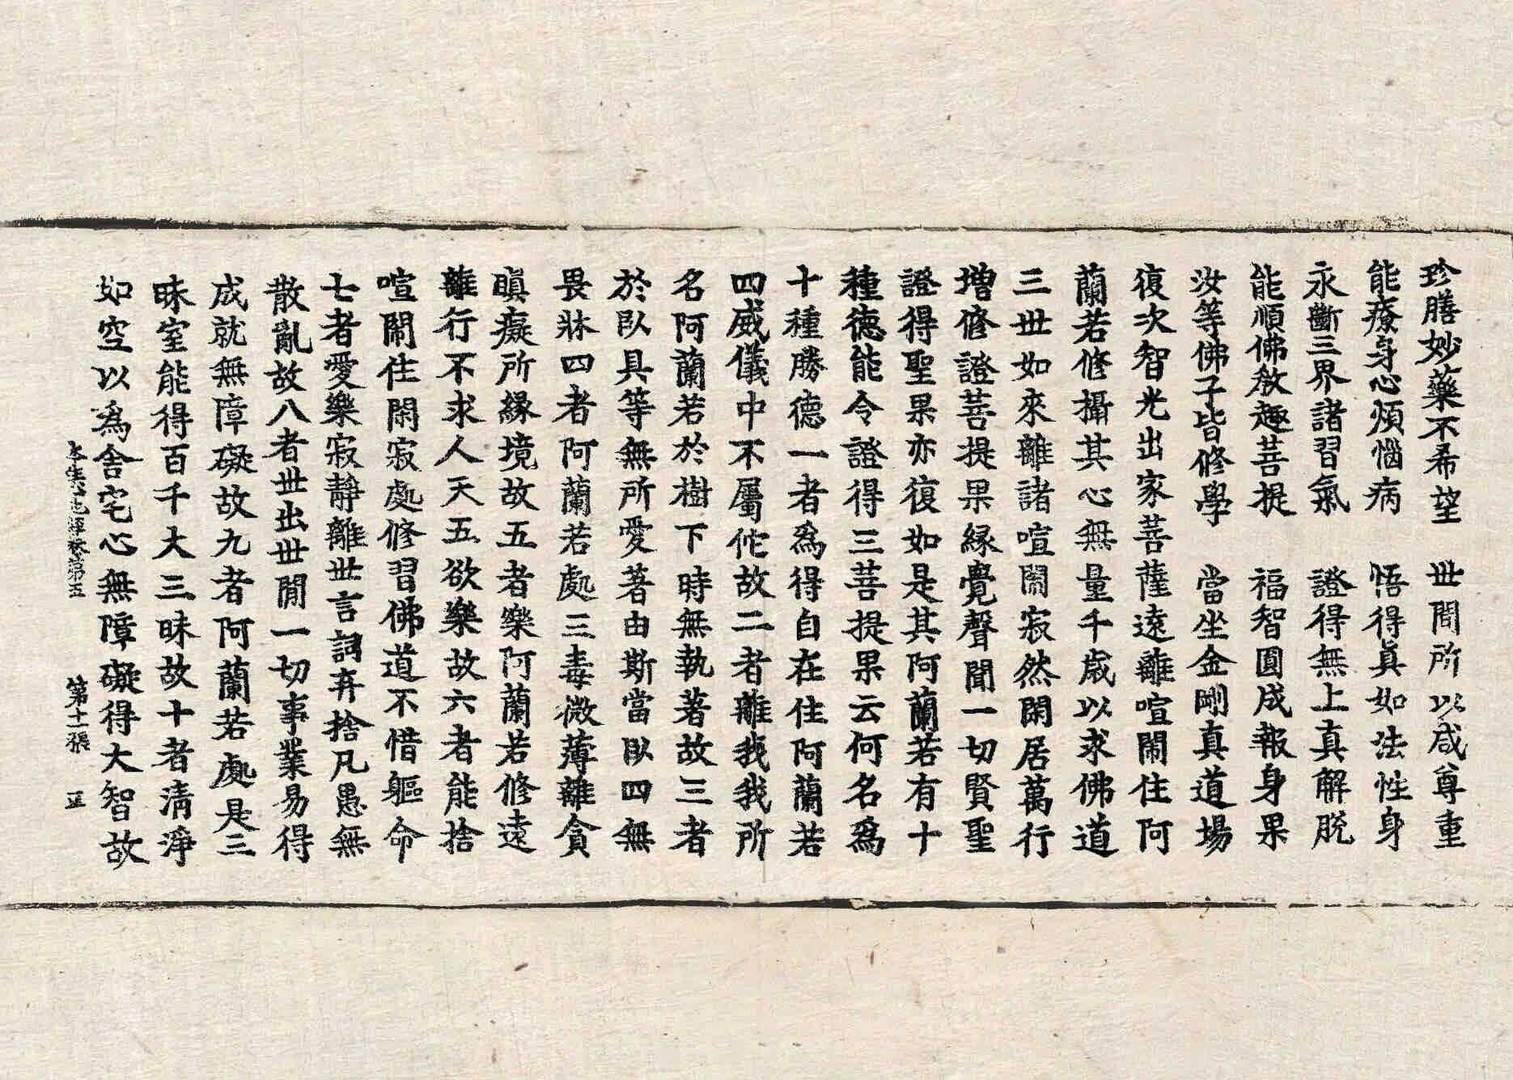 珍膳妙藥不希望　世間所以咸尊重
能療身心煩惱病　悟得真如法性身
永斷三界諸習氣　證得無上真解脫
能順佛教趣菩提　福智圓成報身果
汝等佛子皆修學　當坐金剛真道場
復次智光出家菩薩遠離喧鬧住阿
蘭若修攝其心無量千歲以求佛道
三世如來離諸喧鬧寂然閑居萬行
增修證菩提果緣覺聲聞一切賢聖
證得聖果亦復如是其阿蘭若有十
種德能令證得三菩提果云何名爲
十種勝德一者爲得自在住阿蘭若
四威儀中不屬佗故二者離我我所
名阿蘭若於樹下時無執著故三者
於臥具等無所愛著由斯當臥四無
畏牀四者阿蘭若處三毒微薄離貪
瞋癡所緣境故五者樂阿蘭若修遠
離行不求人天五欲樂故六者能捨
喧鬧住閑寂處修習佛道不惜軀命
七者愛樂寂靜離世言詞弃捨凡愚無
散亂故八者世出世間一切事業易得
成就無障礙故九者阿蘭若處是三
昧室能得百千大三昧故十者清淨
如空以爲舍宅心無障礙得大智故
本生心地經卷第五　第十一張